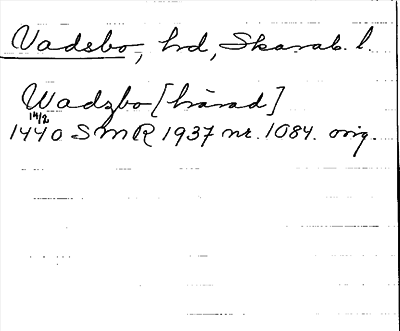 Vadsbo, hd, Skarab. l.
Wadzbo [härad]
14/2
1440 SMR 1937 nr. 1084. orig.